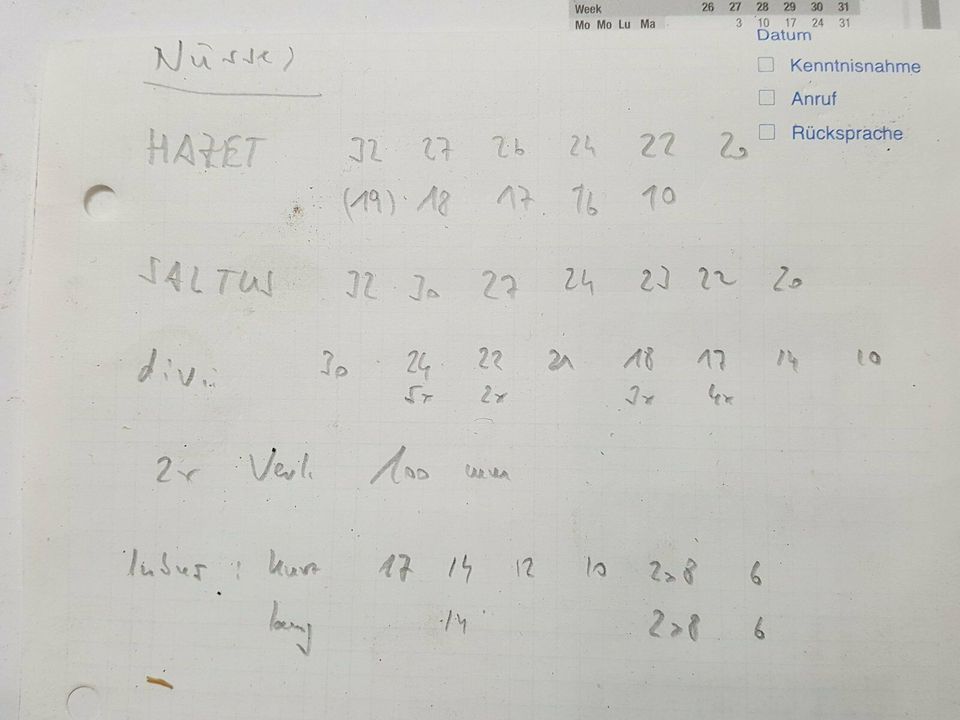 Week 26 27 28 29 30 31
Mo Mo Lu Ma 3 10 17 24 31
Datum
Kenntnisnahme
Anruf
Rücksprache
Nüsse
HAZET 32 27 26 24 22 20
(19) 18 17 16 10
SALTUS 32 30 27 24 23 22 20
div. 30 24 22 21 18 17 14 10
5x 2x 3x 4x
2x Verl. 100 mm
Inbus : kurz 17 14 12 10 2x8 6
lang 14 2x8 6